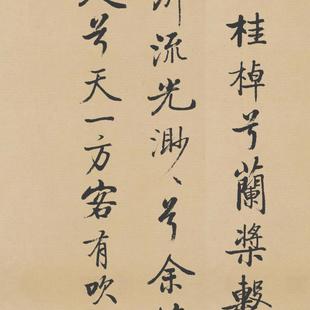 桂棹兮蘭槳擊
流光渺〻兮余
兮天一方客有吹